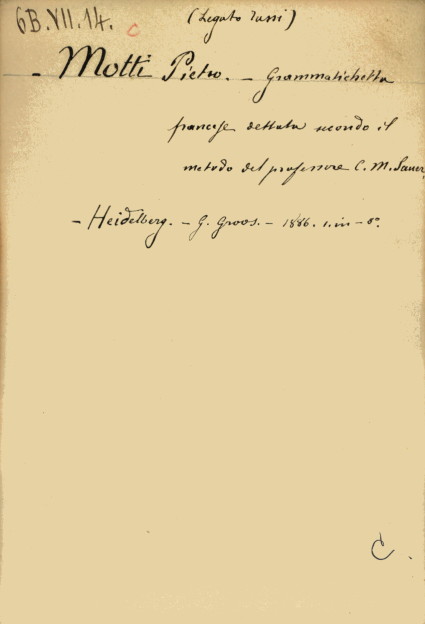 6B.VII.14. C (Legato Tassi)
- Motti Pietro. - Grammatichetta
francese dettata secondo il
metodo del professore C. M. Sauer,
- Heidelberg. - G. Groos. - 1886. in - 8°.
C.